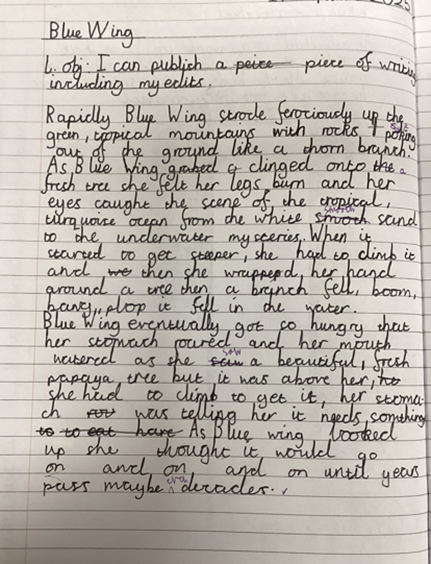 2025
Blue Wing
L. obj: I can publish a peice piece of writing
including my edits.
Rapidly Blue Wing strode ferociously up the
green, tropical mountains with rocks poking
out of the ground like a thorn branch.
As Blue Wing grabed & clinged onto the a
fresh tree she felt her legs burn and her
eyes caught the scene of the tropical,
smooth
turquoise ocean from the white smooth sand
to the underwater mysceries. When it
started to get steeper, she had to climb it
and we then she wrapped, her hand
around a tree then a branch fell, boom,
bang, plop it fell in the water.
Blue Wing eventually got so hungry that
her stomach roared and her mouth
saw
watered as she saw a beautiful, fresh
papaya, tree but it was above her, to
she had to climb to get it, her stoma-
ch was telling her it needs something
to to eat have As Blue wing looked
up she thought it would go
on and on, and on until years
even
pass maybe decades.